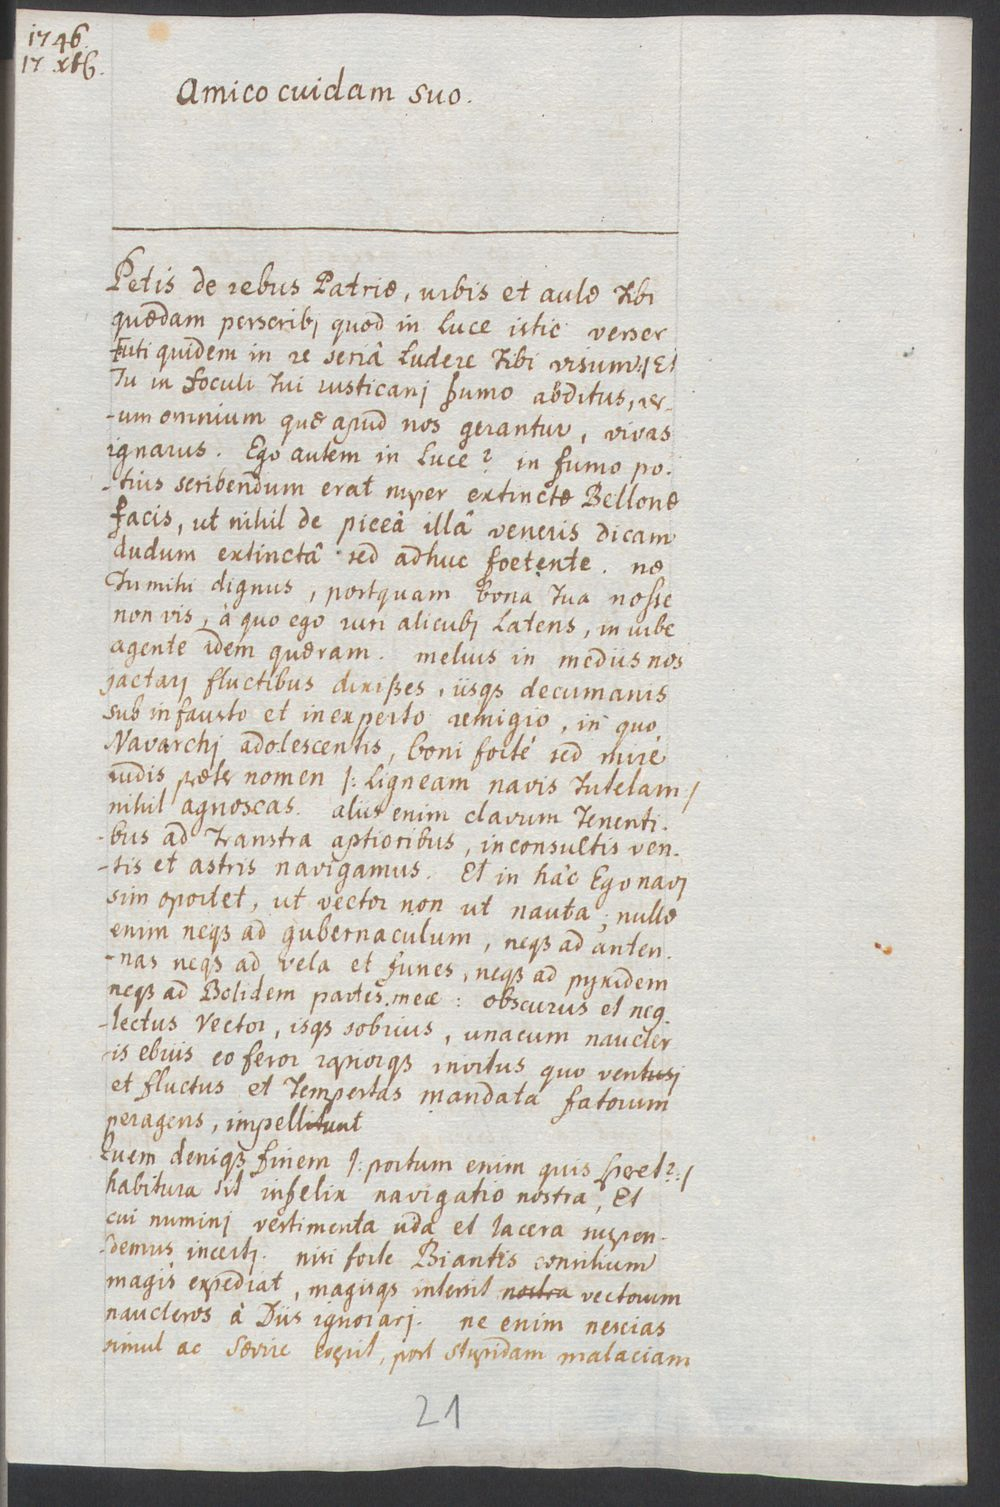 1746.
17 xbς.
Amico cuidam suo.
Petis de rebus Patriæ, urbis et aulæ tibi
quædam perscribj quod in Luce istic verser
Futi quidem in re seriâ Ludere tibi visum :/ Et
Tu in foculi tui rusticanj fumo abditus, rer-
-um omnium quæ apud nos gerantur, vivas
ignarus. Ego autem in Luce? in fumo po.
-tius scribendum erat nuper extinctæ Bellonæ
facis, ut nihil de piceâ illâ veneris dicam
dudum extinctâ sed adhuc foetente. næ
Tu mihi dignus, postquam bona tua nosse
non vis, à quo ego ruri alicubj Latens, in urbe
agente idem quæram. melius in mediis nos
jactarj fluctibus dixisses, iisqs decumanis
sub infausto et inexperto remigio, in quo
Navarchj adolescentis, boni fortè sed mirè
rudis præter nomen /: Ligneam navis tutelam :/
nihil agnoscas. aliis enim clavum Tenenti.
-bus ad transtra aptioribus, inconsultis ven-
-tis et astris navigamus. Et in hâc Ego navj
sim oportet, ut vector non ut nauta; nullæ
enim neqs ad gubernaculum, neqs ad anten.
-nas neqs ad vela et funes, neqs ad pyxidem
neqs ad Bolidem partes meæ: obscurus et neg.
-lectus Vector, isqs sobrius, unacum naucler
-is ebriis eo feror raporqs invitus quo ventusj
et fluctus et Tempestas mandata fatorum
peragens, impellitunt
Quem deniqs finem /: portum enim quis speret? :/
habitura sit infelix navigatio nostra; Et
cui numinj vestimenta uda et lacera suspen-
-demus incertj. nisi forte Biantis consilium
magis expediat, magisqs intersit nostra vectorum
naucleros à Diis ignorarj. ne enim nescias
simul ac sævire cœpit, post stupidam malaciam
21